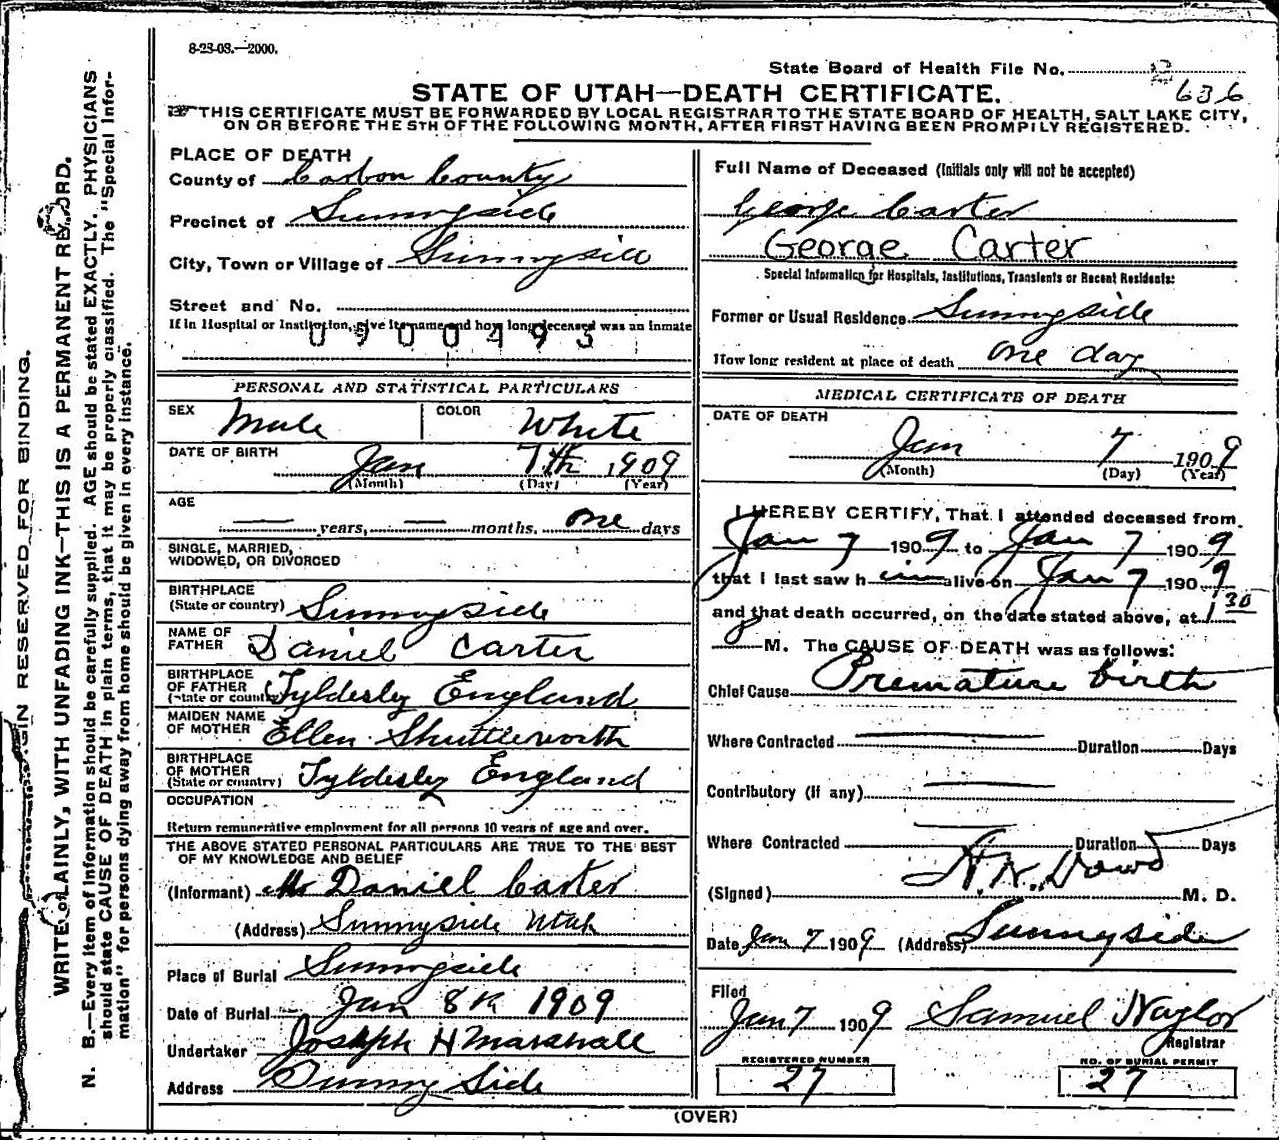 8-23-08.—2000.
State Board of Health File No. 2
636
STATE OF UTAH—DEATH CERTIFICATE.
THIS CERTIFICATE MUST BE FORWARDED BY LOCAL REGISTRAR TO THE STATE BOARD OF HEALTH, SALT LAKE CITY,
ON OR BEFORE THE 5TH OF THE FOLLOWING MONTH, AFTER FIRST HAVING BEEN PROMPILY REGISTERED.
PLACE OF DEATH
County of Carbon County
Precinct of Sunnyside
City, Town or Village of Sunnyside
Street and No.
If in Hospital or Institution, give its name and how long deceased was an inmate
0900493
PERSONAL AND STATISTICAL PARTICULARS
SEX Male COLOR White
DATE OF BIRTH Jan 7th 1909
(Month) (Day) (Year)
AGE
— years, — months, one days
SINGLE, MARRIED,
WIDOWED, OR DIVORCED
BIRTHPLACE
(State or country) Sunnyside
NAME OF
FATHER Daniel Carter
BIRTHPLACE
OF FATHER
(State or country) Tyldesley England
MAIDEN NAME
OF MOTHER Ellen Shuttleworth
BIRTHPLACE
OF MOTHER
(State or country) Tyldesley England
OCCUPATION
Return remunerative employment for all persons 10 years of age and over.
THE ABOVE STATED PERSONAL PARTICULARS ARE TRUE TO THE BEST
OF MY KNOWLEDGE AND BELIEF
(Informant) Mr Daniel Carter
(Address) Sunnyside Utah
Place of Burial Sunnyside
Date of Burial Jan 8th 1909
Undertaker Joseph H Marshall
Address Sunny Side
Full Name of Deceased (Initials only will not be accepted)
George Carter
George Carter
Special Information for Hospitals, Institutions, Transients or Recent Residents:
Former or Usual Residence Sunnyside
How long resident at place of death one day
MEDICAL CERTIFICATE OF DEATH
DATE OF DEATH
Jan 7 1909
(Month) (Day) (Year)
I HEREBY CERTIFY, That I attended deceased from
Jan 7 1909 to Jan 7 1909
that I last saw him alive on Jan 7 1909
and that death occurred, on the date stated above, at 1 30
M. The CAUSE OF DEATH was as follows:
Chief Cause Premature birth
Where Contracted — Duration Days
Contributory (if any) —
Where Contracted — Duration Days
(Signed) H.N. Dowd M. D.
Date Jan 7 1909 (Address) Sunnyside
Filed
Jan 7 1909 Samuel Naylor
Registrar
REGISTERED NUMBER
27
NO. OF BURIAL PERMIT
27
(OVER)
GIN RESERVED FOR BINDING.
WRITE PLAINLY, WITH UNFADING INK—THIS IS A PERMANENT RECORD.
N. B.—Every item of information should be carefully supplied. AGE should be stated EXACTLY. PHYSICIANS
should state CAUSE OF DEATH in plain terms, that it may be properly classified. The "Special Infor-
mation" for persons dying away from home should be given in every instance.